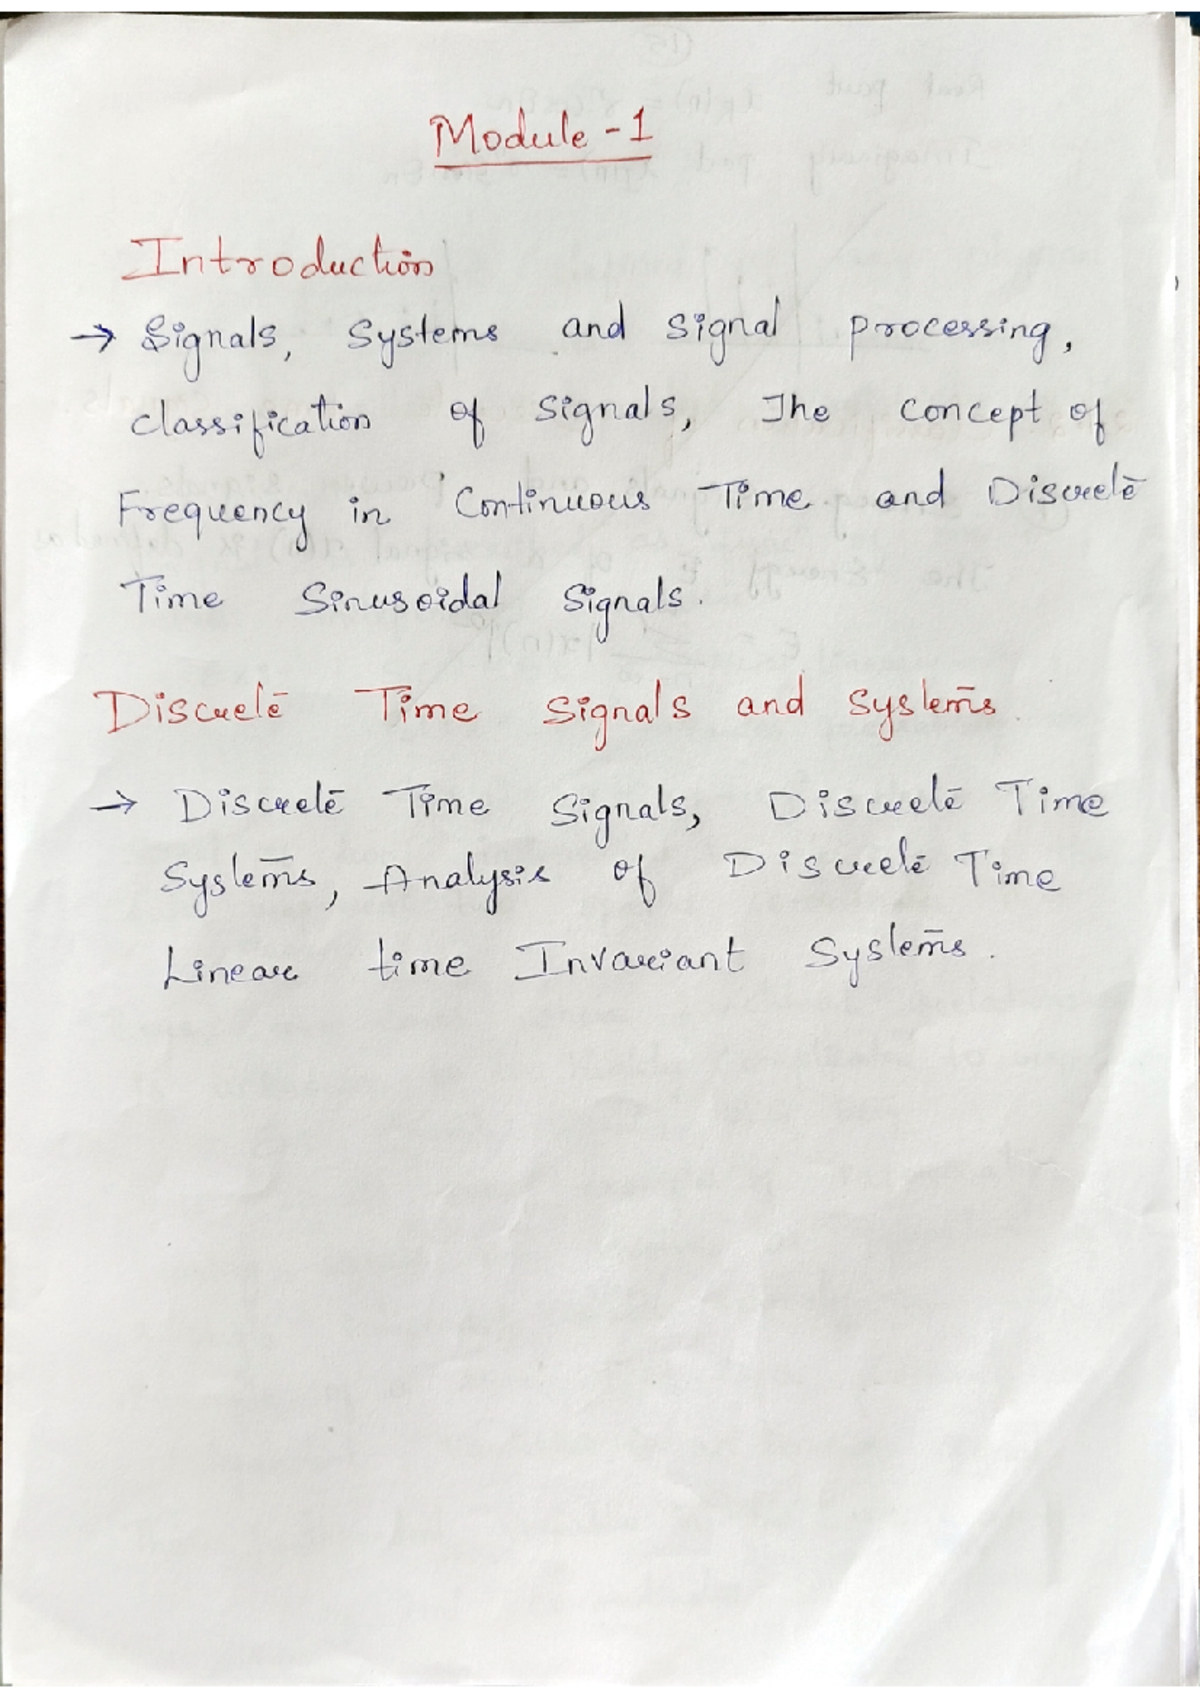 Module - 1
Introduction
→ Signals, Systems and Signal Processing,
classification of Signals, The Concept of
Frequency in Continuous Time and Discrete
Time Sinusoidal Signals.
Discrete Time Signals and Systems.
→ Discrete Time Signals, Discrete Time
Systems, Analysis of Discrete Time
Linear time Invariant Systems.